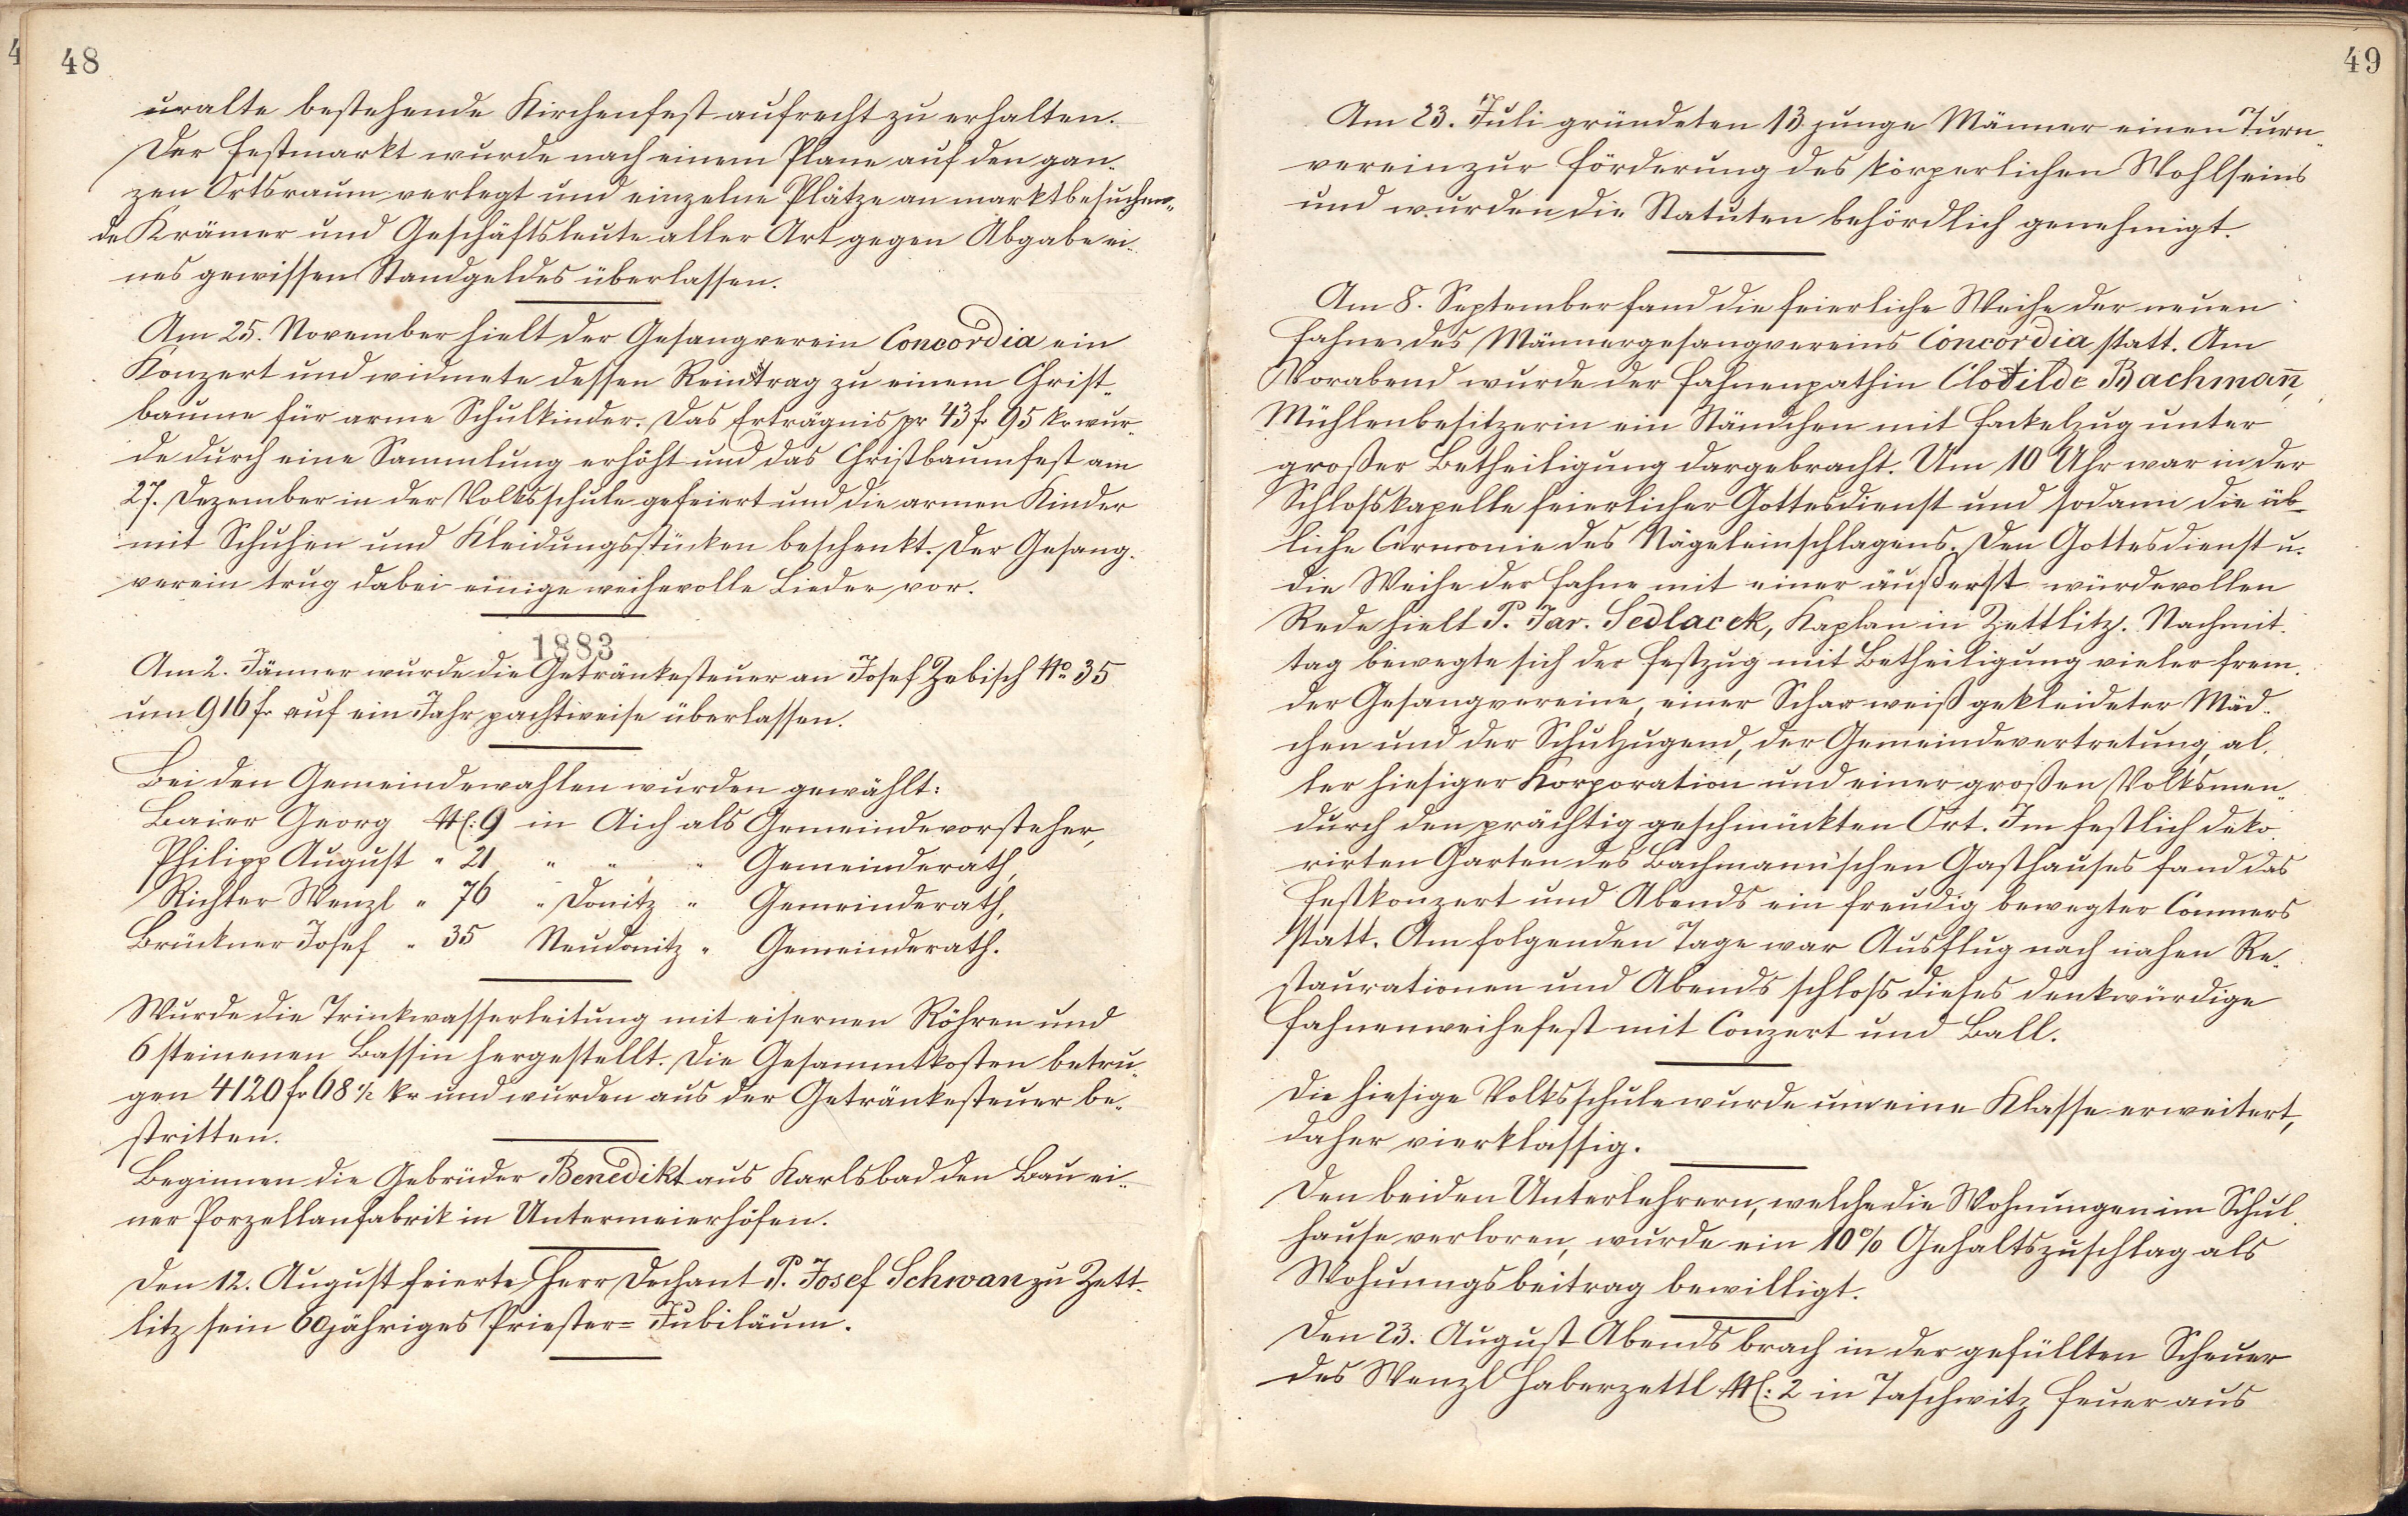 48
uralte bestehende Kirchenfest aufrecht zu erhalten.
Der Festmarkt wurde nach einem Plane auf den gan-
zen Ortsraum verlegt und einzelne Plätze an marktbesuchen-
de Krämer und Geschäftsleute aller Art gegen Abgabe ei-
nes gewissen Standgeldes überlassen.
Am 25. November hielt der Gesangverein Concordia ein
Konzert und widmete dessen Reintrag zu einem Christ-
baume für arme Schulkinder. Das Erträgnis pr 43 fr 95 kr wur-
de durch eine Sammlung erhöht und das Christbaumfest am
27. Dezember in der Volksschule gefeiert und die armen Kinder
mit Schuhen und Kleidungsstücken beschenkt. Der Gesang-
verein trug dabei einige weihevolle Lieder vor.
1883
Am 2. Jänner wurde die Getränkesteuer an Josef Zebisch No 35
um 916 fr auf ein Jahr pachtweise überlassen.
Bei den Gemeindewahlen wurden gewählt:
Baier Georg N: 9 in Aich als Gemeindevorsteher,
Philipp August " 21 " " " Gemeinderath,
Richter Wenzl " 76 " Donitz " Gemeinderath,
Brückner Josef " 35 Neudonitz " Gemeinderath.
Wurde die Trinkwasserleitung mit eisernen Röhren und
6 steinenen Bassin hergestellt. Die Gesammtkosten betru-
gen 4120 fr 68 1/2 kr und wurden aus der Getränkesteuer be-
stritten.
Beginnen die Gebrüder Benedikt aus Karlsbad den Bau ei-
ner Porzellanfabrik in Untermeierhöfen.
Den 12. August feierte Herr Dechant P. Josef Schwan zu Zett-
litz sein 60jähriges Priester=Jubiläum.
49
Am 23. Juli gründeten 13 junge Männer einen Turn-
verein zur Förderung des körperlichen Wohlseins
und wurden die Statuten behördlich genehmigt.
Am 8. September fand die feierliche Weihe der neuen
Fahne des Männergesangvereins Concordia statt. Am
Vorabend wurde der Fahnenpathin Clotilde Bachmañ,
Mühlenbesitzerin ein Ständchen mit Fackelzug unter
großer Betheiligung dargebracht. Um 10 Uhr war in der
Schlosskapelle feierlicher Gottesdienst und sodann die üb-
liche Cermonie des Nägeleinschlagens. Den Gottesdienst u.
die Weihe der Fahne mit einer äußerst würdevollen
Rede hielt P. Jar. Sedlacek, Kaplan in Zettlitz. Nachmit-
tag bewegte sich der Festzug mit Betheiligung vieler frem-
der Gesangvereine, einer Schar weiß gekleideter Mäd-
chen und der Schuljugend, der Gemeindevertretung, al-
ler hiesiger Korporation und einer großen Volksmen-
durch den prächtig geschmückten Ort. Im festlich deko-
rirten Garten des Bachmann'schen Gasthauses fand das
Festkonzert und Abends ein freudig bewegter Commers
statt. Am folgenden Tage war Ausflug nach nahen Re-
staurationen und Abends schloss dieses denkwürdige
Fahnenweihefest mit Conzert und Ball.
Die hiesige Volksschule wurde um eine Klasse erweitert,
daher vierklassig.
Den beiden Unterlehrern, welche die Wohnungen im Schul-
hause verloren, wurde ein 10% Gehaltszuschlag als
Wohnungsbeitrag bewilligt.
Den 23. August Abends brach in der gefüllten Scheuer
des Wenzl Haberzettl N: 2 in Taschwitz Feuer aus